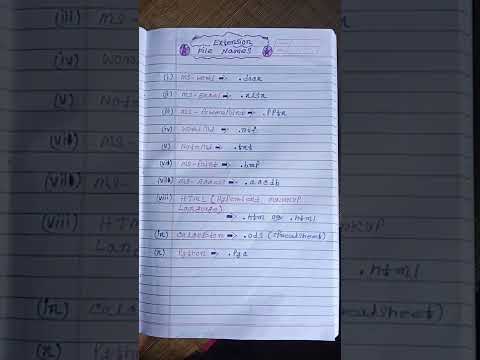 Extension
File Names
(i) MS-Word => .docx
(ii) MS-Excel => .xlsx
(iii) MS-PowerPoint => .PPtx
(iv) WordPad => .rtf
(v) NotePad => .txt
(vi) MS-Paint => .bmp
(vii) MS-Access => .accdb
(viii) HTML (Hypertext Markup
Language)
=> .htm or .html
(ix) => .ods (Spreadsheet)
(x) Python =>